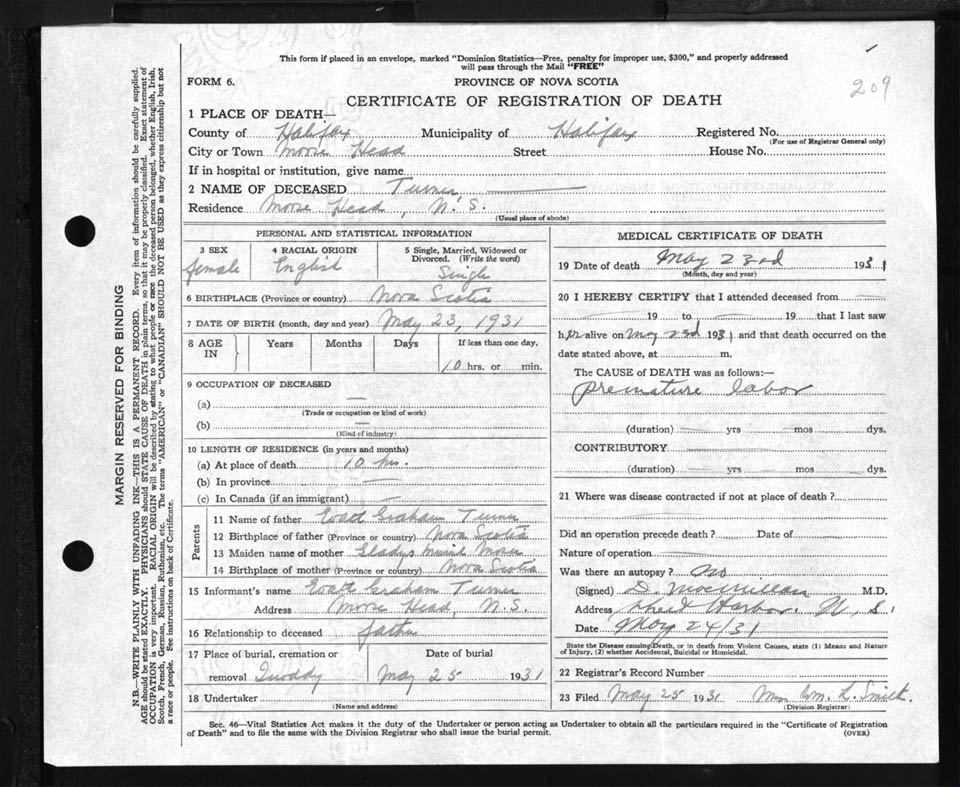 This form if placed in an envelope, marked "Dominion Statistics—Free, penalty for improper use, $300," and properly addressed
will pass through the Mail "FREE"
209
FORM 6. PROVINCE OF NOVA SCOTIA
CERTIFICATE OF REGISTRATION OF DEATH
1 PLACE OF DEATH—
County of Halifax Municipality of Halifax Registered No.
(For use of Registrar General only)
City or Town Moose Head Street House No.
If in hospital or institution, give name
2 NAME OF DECEASED Turner
Residence Moose Head, N.S.
(Usual place of abode)
PERSONAL AND STATISTICAL INFORMATION
3 SEX 4 RACIAL ORIGIN 5 Single, Married, Widowed or
Divorced. (Write the word)
female English Single
6 BIRTHPLACE (Province or country) Nova Scotia
7 DATE OF BIRTH (month, day and year) May 23, 1931
8 AGE IN Years Months Days If less than one day,
10 hrs. or min.
9 OCCUPATION OF DECEASED
(a)
(Trade or occupation or kind of work)
(b)
(Kind of industry)
10 LENGTH OF RESIDENCE (in years and months)
(a) At place of death 10 hrs.
(b) In province
(c) In Canada (if an immigrant)
Parents
11 Name of father Graham Turner
12 Birthplace of father (Province or country) Nova Scotia
13 Maiden name of mother Gladys
14 Birthplace of mother (Province or country) Nova Scotia
15 Informant's name Graham Turner
Address Moose Head, N.S.
16 Relationship to deceased father
17 Place of burial, cremation or Date of burial
removal Quoddy May 25 1931
18 Undertaker
(Name and address)
MEDICAL CERTIFICATE OF DEATH
19 Date of death May 23rd 1931
(Month, day and year)
20 I HEREBY CERTIFY that I attended deceased from
19 to 19 that I last saw
her alive on May 23d 1931 and that death occurred on the
date stated above, at m.
The CAUSE of DEATH was as follows:—
premature labor
(duration) yrs mos dys.
CONTRIBUTORY
(duration) yrs mos dys.
21 Where was disease contracted if not at place of death?
Did an operation precede death? Date of
Nature of operation
Was there an autopsy? no
(Signed) D. McMillan M.D.
Address Sheet Harbor. N.S.
Date May 24/31
State the Disease causing Death, or in death from Violent Causes, state (1) Means and Nature
of Injury, (2) whether Accidental, Suicidal or Homicidal.
22 Registrar's Record Number
23 Filed May 25 1931 Wm. L. Smith.
(Division Registrar)
Sec. 46—Vital Statistics Act makes it the duty of the Undertaker or person acting as Undertaker to obtain all the particulars required in the "Certificate of Registration
of Death" and to file the same with the Division Registrar who shall issue the burial permit. (OVER)
MARGIN RESERVED FOR BINDING
N.B.—WRITE PLAINLY WITH UNFADING INK—THIS IS A PERMANENT RECORD. Every item of information should be carefully supplied.
AGE should be stated EXACTLY. PHYSICIANS should STATE CAUSE OF DEATH in plain terms, so that it may be properly classified. Exact statement of
OCCUPATION is very important. RACIAL ORIGIN will be described by stating to what people or race the deceased person belonged, whether English, Irish,
Scotch, French, German, Russian, Ruthenian, etc. The terms "AMERICAN" or "CANADIAN" SHOULD NOT BE USED as they express citizenship but not
a race or people. See instructions on back of Certificate.